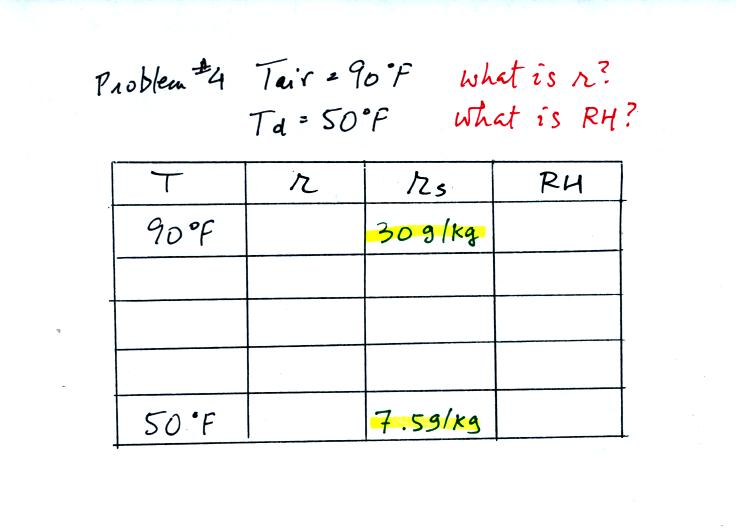 Problem #4 Tair = 90°F what is r?
Td = 50°F what is RH?
T r rs RH
90°F 30 g/kg
50°F 7.5g/kg